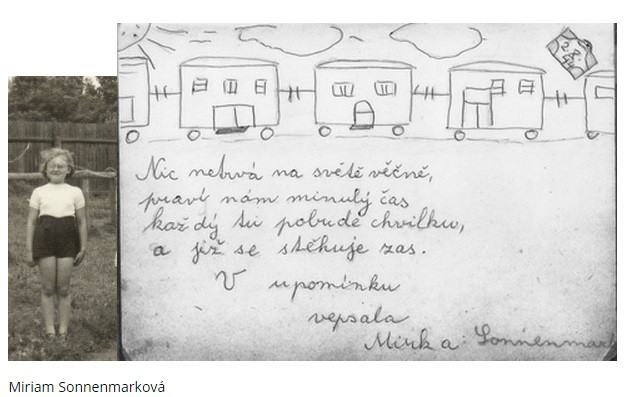 Nic netrvá na světě věčně,
praví nám minulý čas
každý tu pobude chvilku,
a již se stěhuje zas.
V upomínku
vepsala
Mirka Sonnenmark
Miriam Sonnenmarková